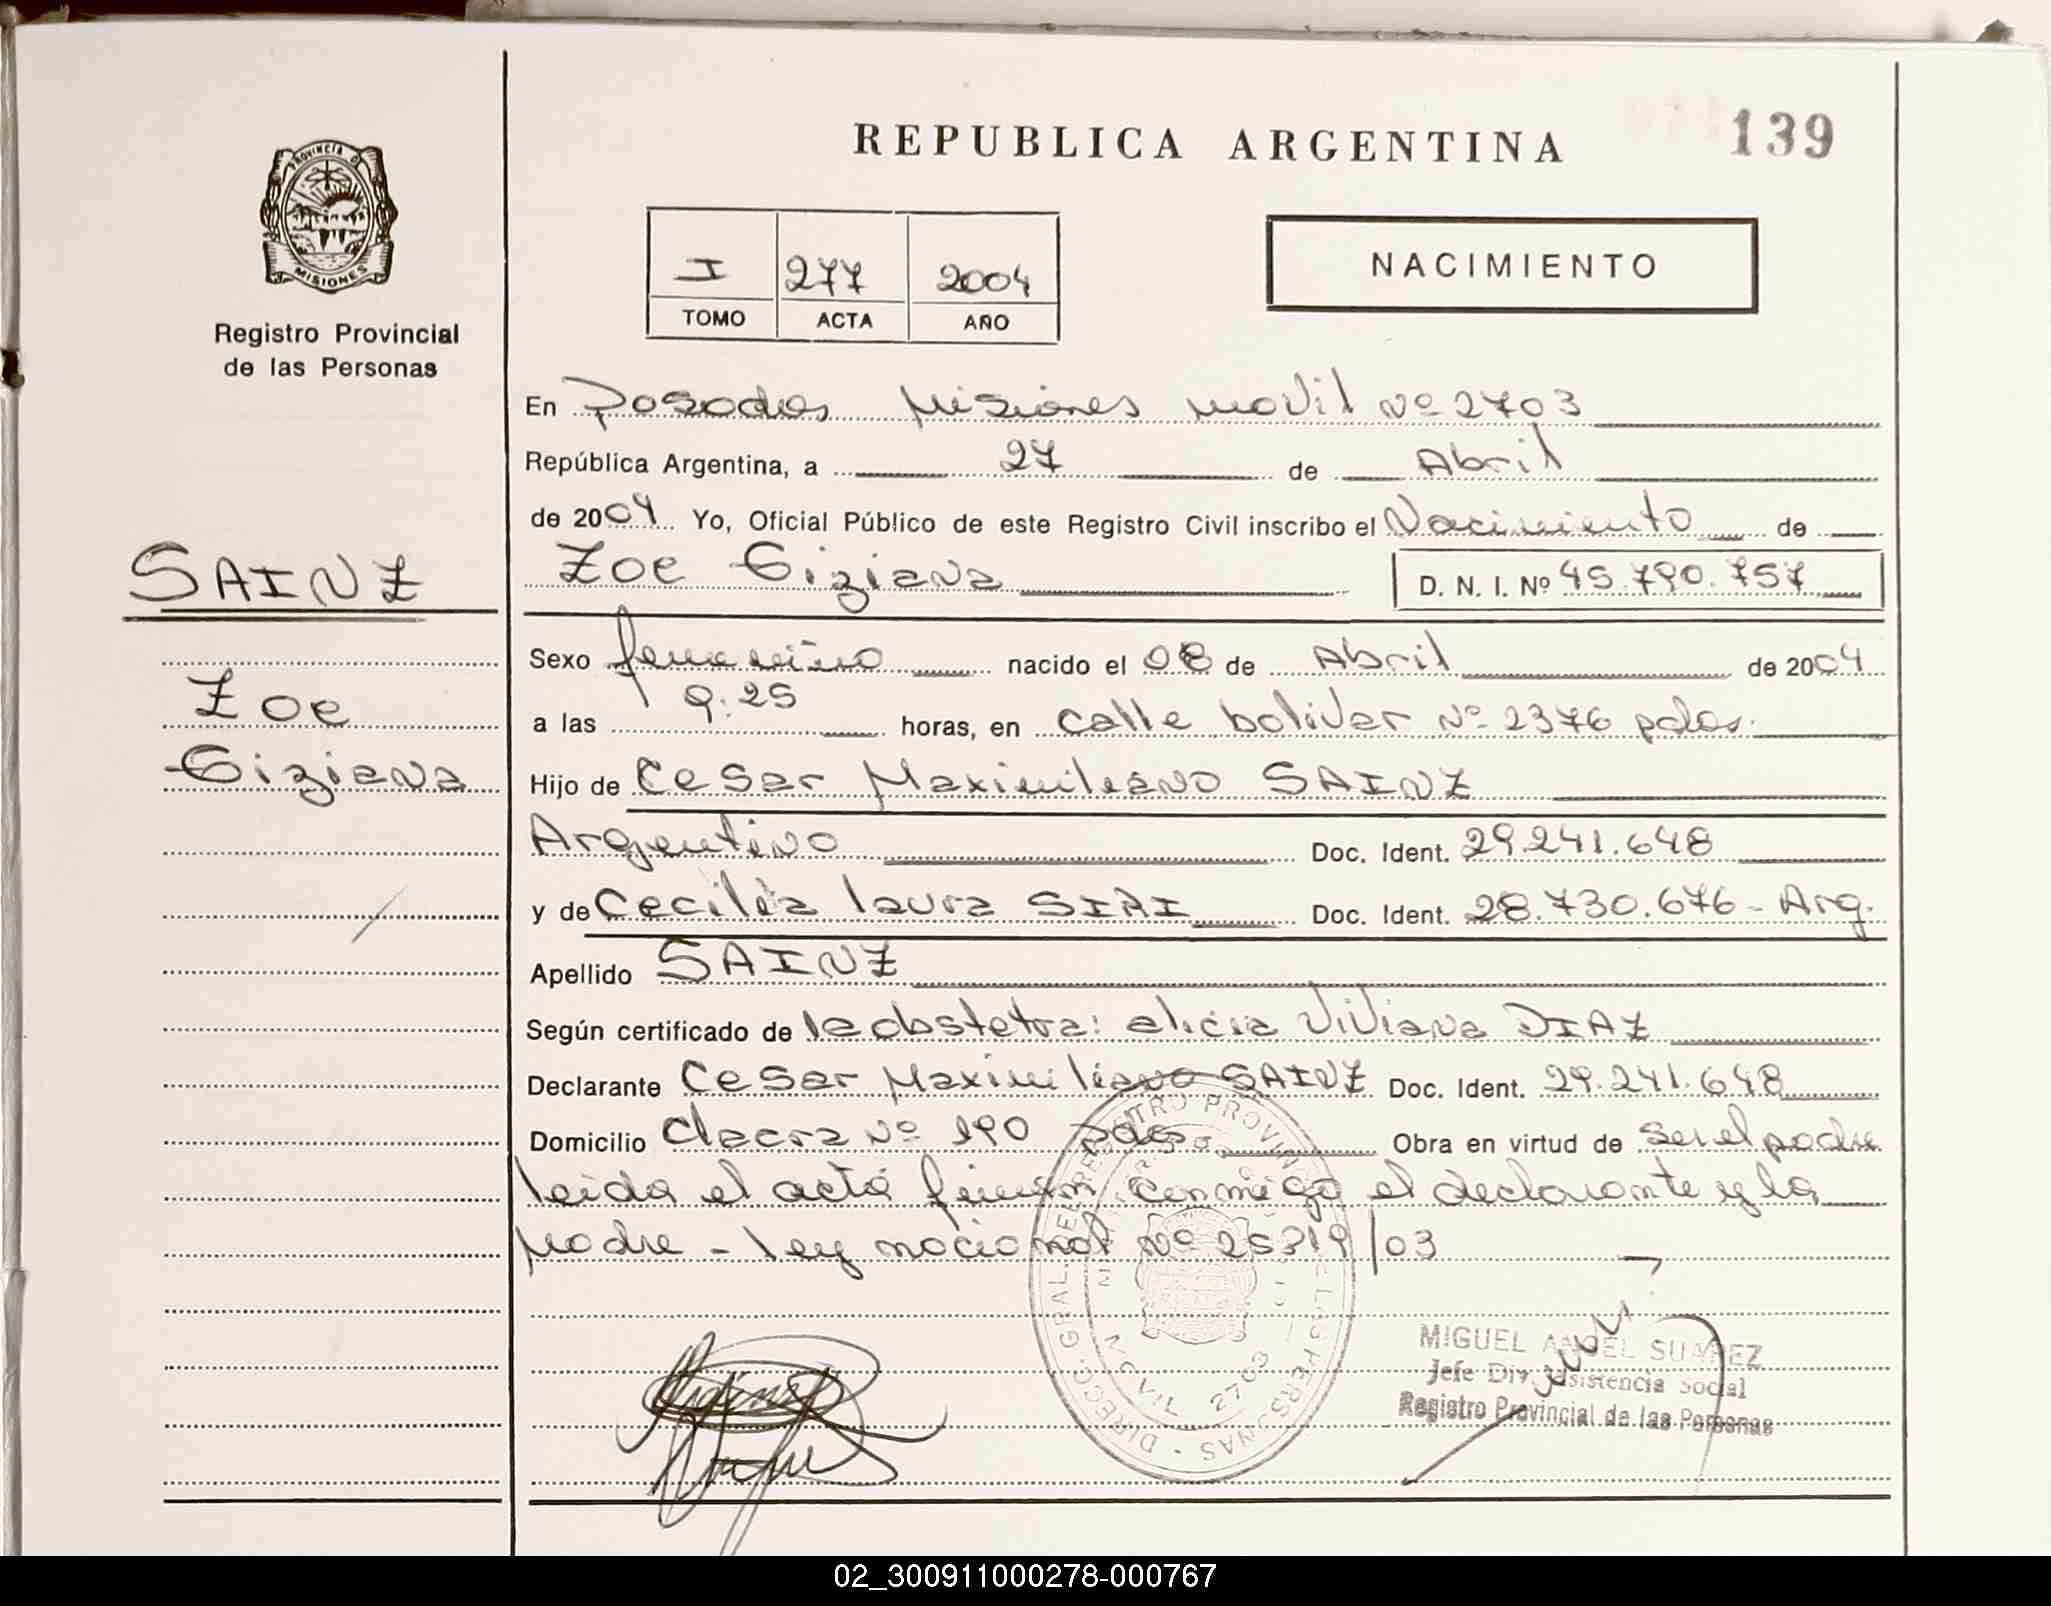 PROVINCIA D
MISIONES
Registro Provincial
de las Personas
REPUBLICA ARGENTINA
139
I 277 2004
TOMO ACTA AÑO
NACIMIENTO
En Posadas Misiones movil Nº 2703
República Argentina, a 27 de Abril
de 2004 Yo, Oficial Público de este Registro Civil inscribo el Nacimiento de
Zoe Giziana D. N. I. Nº 45.790.757
SAINZ
Zoe
Giziana
Sexo femenino nacido el 08 de Abril de 2004
a las 9:25 horas, en calle bolivar Nº 2376 pdas.
Hijo de Cesar Maximiliano SAINZ
Argentino Doc. Ident. 29.241.648
y de Cecilia laura Doc. Ident. 28.730.676 - Arg.
Apellido SAINZ
Según certificado de la obstetra: alicia Viviana DIAZ
Declarante Cesar Maximiliano SAINZ Doc. Ident. 29.241.648
Domicilio Chacra Nº 190 pdas Obra en virtud de ser el padre
leida el acta firman conmigo el declarante y la
Madre - ley nacional Nº 25819/03
MIGUEL ANGEL SUAREZ
Jefe Div. Asistencia Social
Registro Provincial de las Personas
02_300911000278-000767